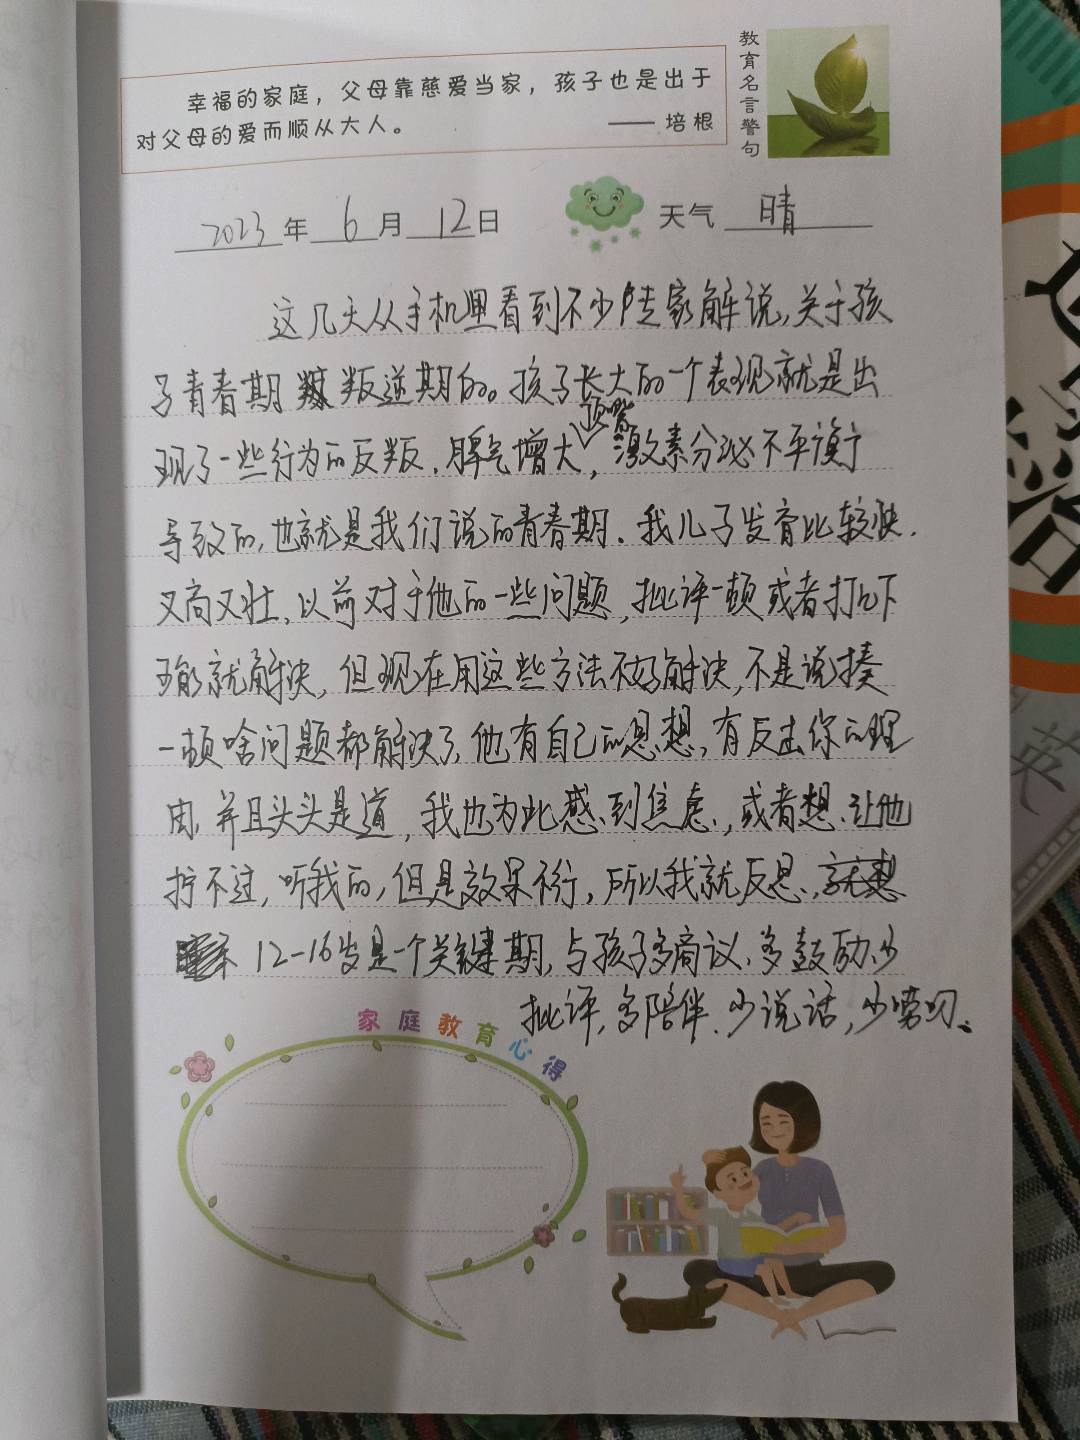 教育名言警句
幸福的家庭，父母靠慈爱当家，孩子也是出于
对父母的爱而顺从大人。 —— 培根
2023年6月12日 天气 晴
这几天从手机里看到不少专家解说，关于孩
子青春期叛逆期的。孩子长大的一个表现就是出
现了一些行为的反叛、脾气增大，顶嘴，激素分泌不平衡
导致的，也就是我们说的青春期、我儿子发育比较快、
又高又壮、以前对于他的一些问题，批评一顿或者打几下
就解决，但现在用这些方法不好解决，不是说揍
一顿啥问题都解决了，他有自己的思想，有反击你的理
由，并且头头是道，我也为此感到焦虑，或者想让他
拧不过，听我的，但是效果不行，所以我就反思、就想
12-16岁是一个关键期，与孩子多商议、多鼓励、少
批评，多陪伴、少说话，少唠叨、
家庭教育心得
英